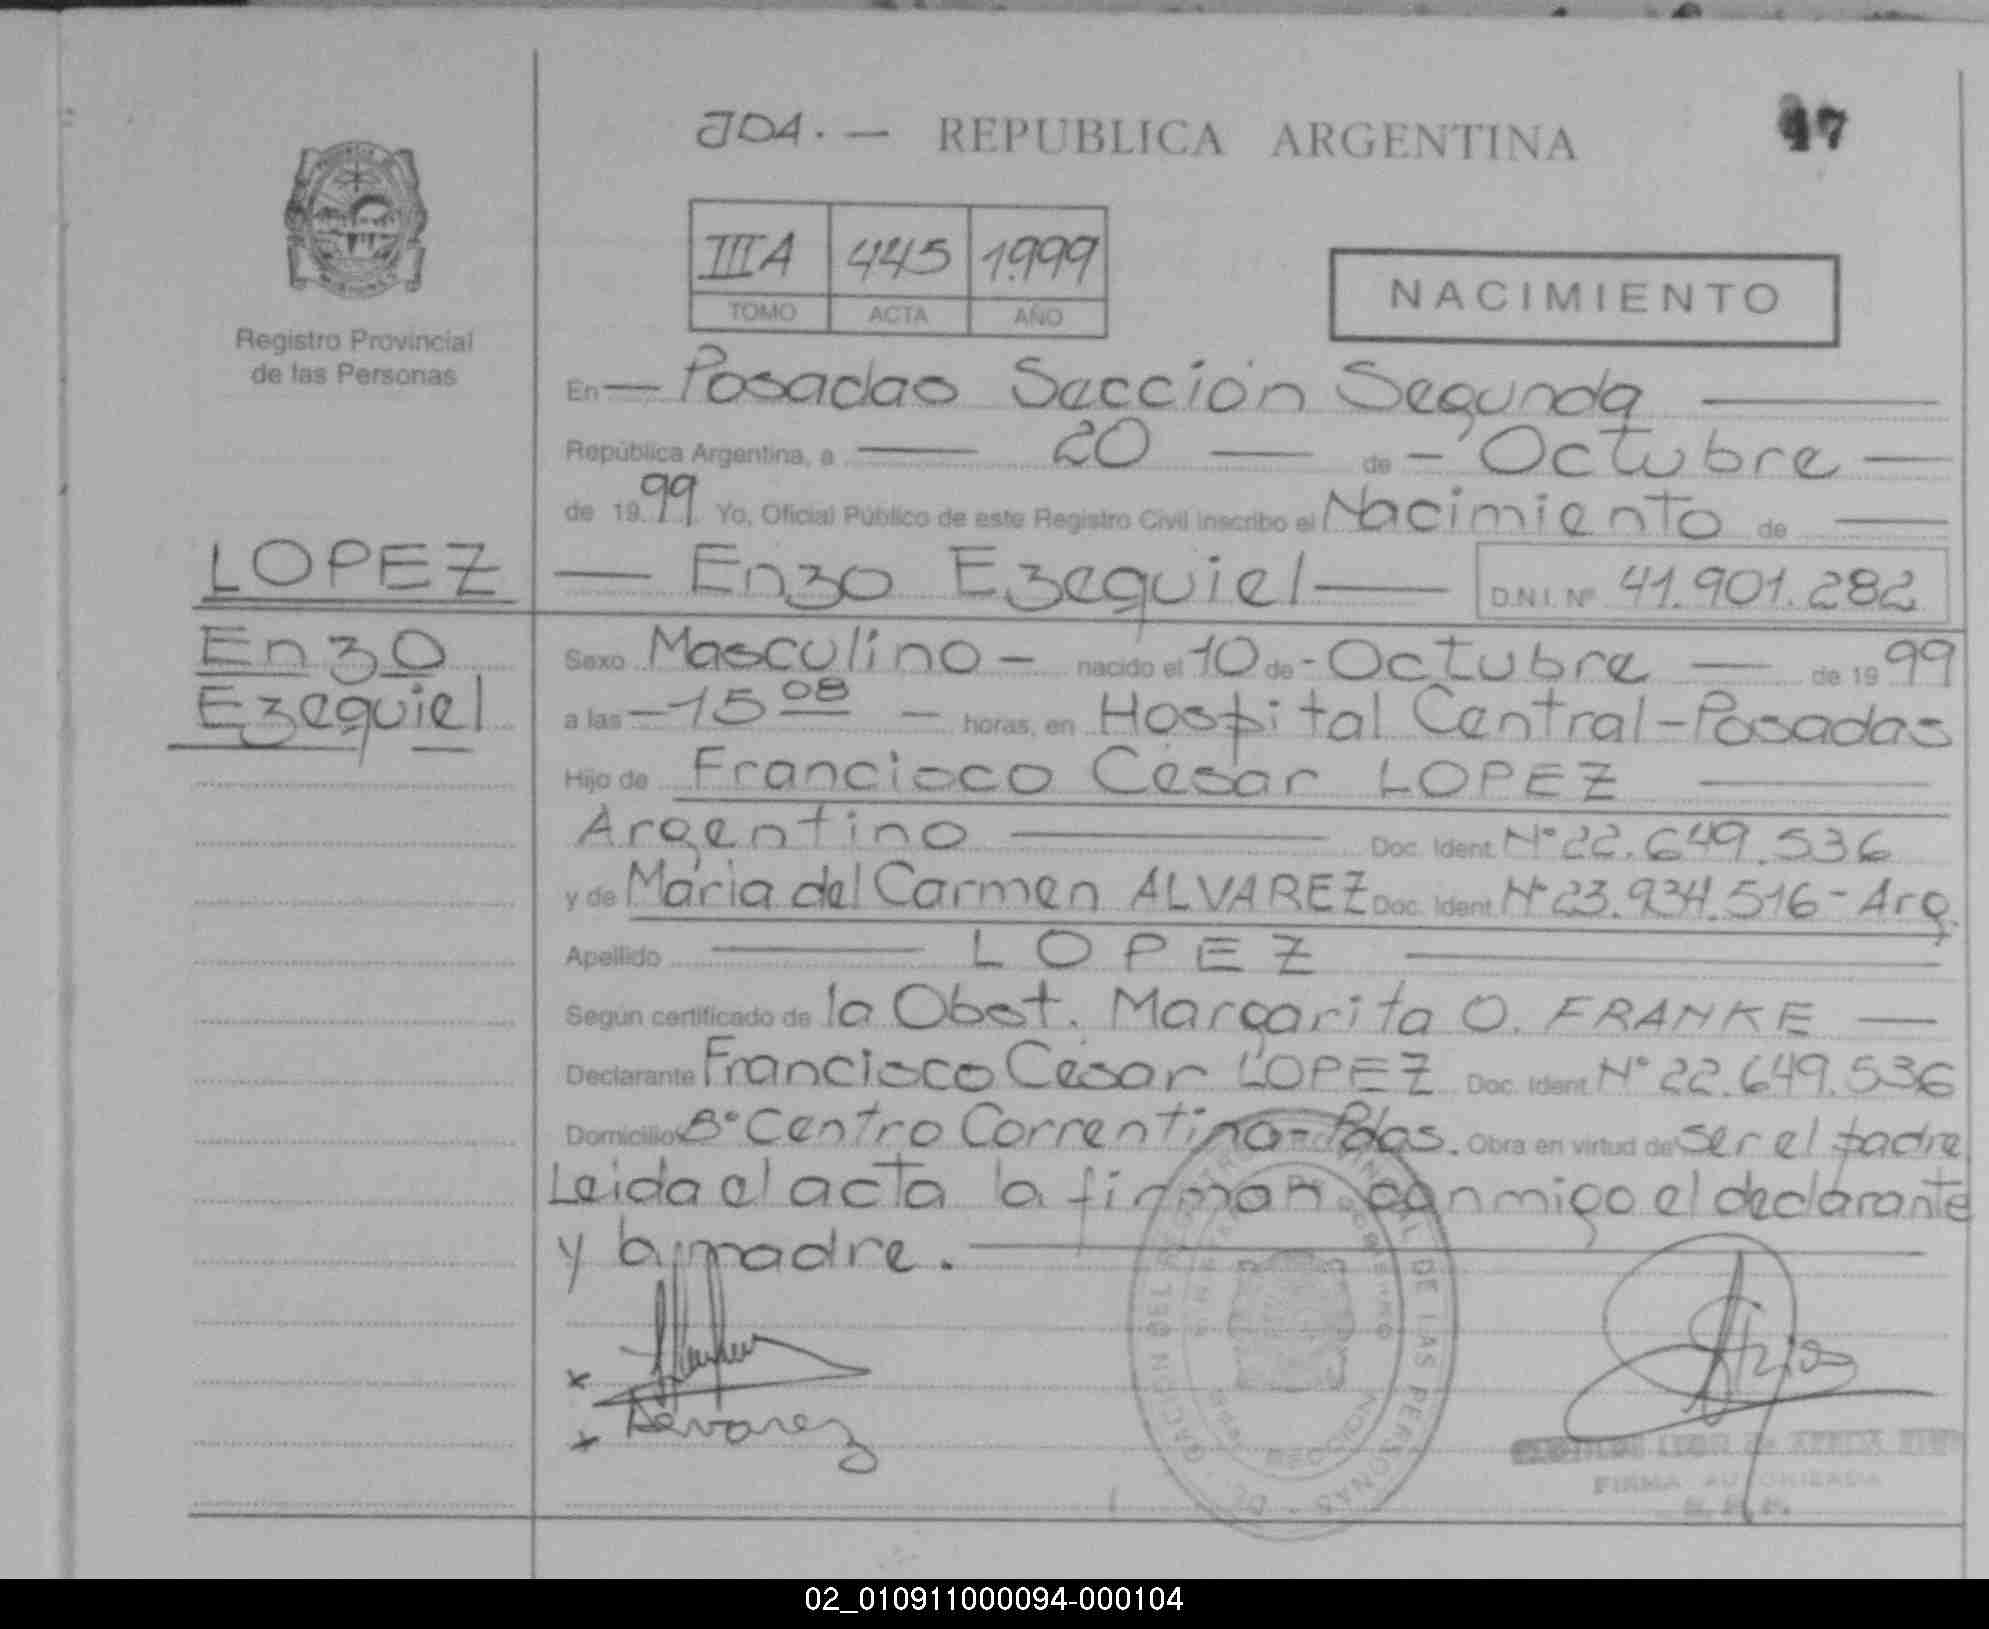 JDA. — REPUBLICA ARGENTINA
47
III A 445 1.999
TOMO ACTA AÑO
NACIMIENTO
Registro Provincial
de las Personas
En — Posadas Sección Segunda —
República Argentina, a — 20 — de — Octubre —
de 19 99 Yo, Oficial Público de este Registro Civil inscribo el Nacimiento de —
LOPEZ — Enzo Ezequiel — D.N.I. Nº 41.901.282
Enzo
Ezequiel
Sexo Masculino — nacido el 10 de - Octubre — de 19 99
a las — 15 08 — horas, en Hospital Central - Posadas
Hijo de Francisco César LOPEZ —
Argentino — Doc. Ident. Nº 22.649.536
y de María del Carmen ALVAREZ Doc. Ident. Nº 23.934.516 - Arg.
Apellido — LOPEZ —
Según certificado de la Obst. Margarita O. FRANKE —
Declarante Francisco César LOPEZ Doc. Ident. Nº 22.649.536
Domicilio Bº Centro Correntino - Pdas. Obra en virtud de ser el padre
Leida el acta la firman conmigo el declarante
y la madre. —
Alvarez
DE LAS PERSONAS
FIRMA AUTORIZADA
02_010911000094-000104